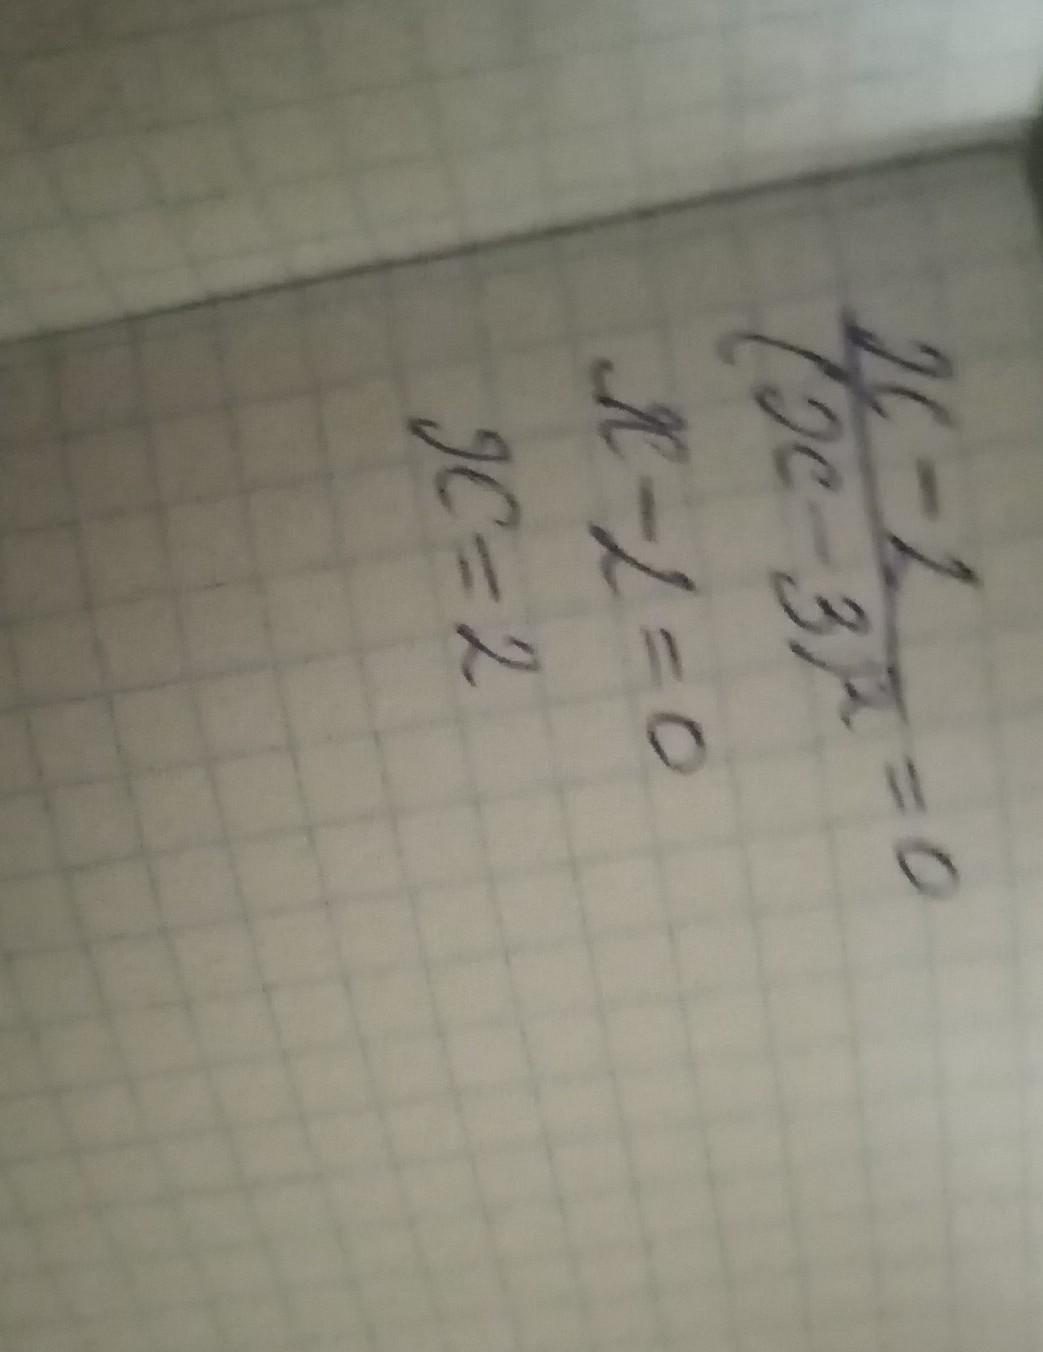 x - 1
(x - 3)² = 0
x - 1 = 0
x = 2